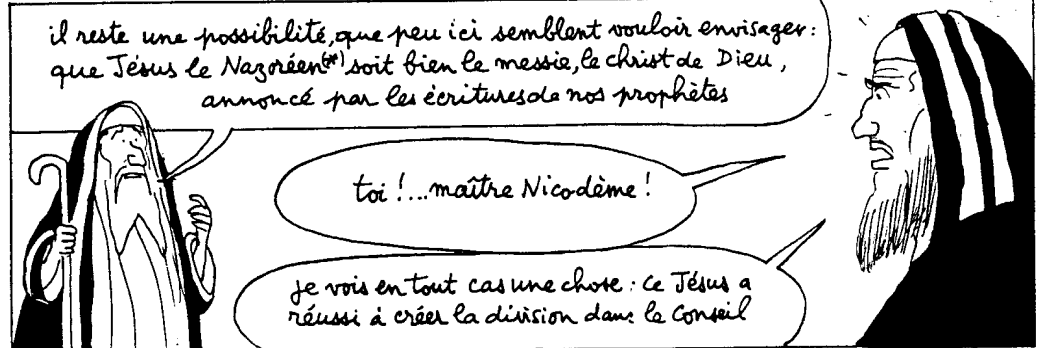 il reste une possibilité, que peu ici semblent vouloir envisager :
que Jésus le Nazoréen(*) soit bien le messie, le christ de Dieu,
annoncé par les écritures de nos prophètes
toi !... maître Nicodème !
je vois en tout cas une chose : ce Jésus a
réussi à créer la division dans le Conseil